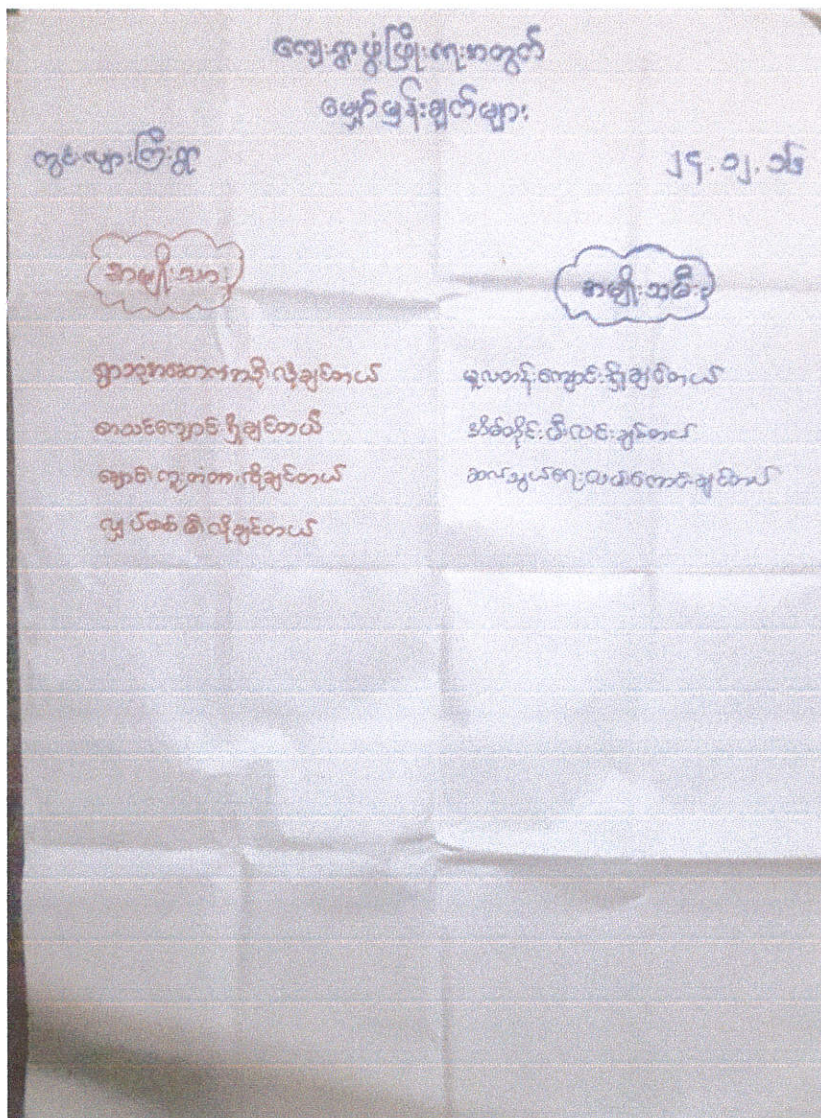 ကျေးရွာဖွံ့ဖြိုးရေးအတွက်
မျှော်မှန်းချက်များ
ကွင်းလျားကြီးရွာ ၂၄.၁၂.၁၆
အမျိုးသား
ရွာသုံးအဆောက်အဦလိုချင်တယ်
စာသင်ကျောင်းရှိချင်တယ်
ချောင်းကူးတံတားလိုချင်တယ်
လျှပ်စစ်မီးလိုချင်တယ်
အမျိုးသမီး
မူလတန်းကျောင်းရှိချင်တယ်
အိမ်တိုင်းမီးလင်းချင်တယ်
ဆက်သွယ်ရေးလမ်းကောင်းချင်တယ်